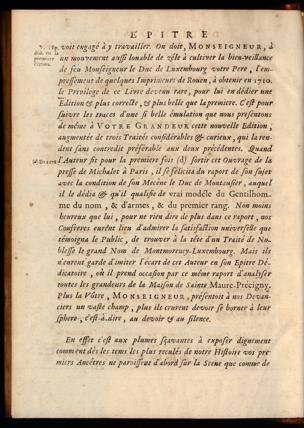 EPITRE
voit engagé à y travailler. On doit, MONSEIGNEUR, à
un mouvement aussi louable de zéle à cultiver la bien-veillance
de feu Monseigneur le Duc de Luxembourg votre Pere, l'em-
pressement de quelques Imprimeurs de Rouen, à obtenir en 1710.
le Privilege de ce Livre devenu rare, pour lui en dédier une
Edition & plus correcte, & plus belle que la premiere. C'est pour
suivre les traces d'une si belle émulation que nous presentons
de même à VOTRE GRANDEUR cette nouvelle Edition,
augmentée de trois Traités considérables & curieux, qui la ren-
dent sans contredit préférable aux deux précédentes. Quand
l'Auteur fit pour la premiere fois (d) sortir cet Ouvrage de la
presse de Michalet à Paris, il se félicita du raport de son sujet
avec la condition de son Mécéne le Duc de Montausier, auquel
il le dédia & qu'il qualifie de vrai modéle du Gentilhom-
me du nom, & d'armes, & du premier rang. Non moins
heureux que lui, pour ne rien dire de plus dans ce raport, nos
Confreres eurent lieu d'admirer la satisfaction universelle que
témoigna le Public, de trouver à la tête d'un Traité de No-
blesse le grand Nom de Montmorency-Luxembourg. Mais ils
n'eurent garde d'imiter l'écart de cet Auteur en son Epitre Dé-
dicatoire, où il prend occasion par ce même raport d'analyser
toutes les grandeurs de la Maison de Sainte Maure-Précigny.
Plus la Vôtre, MONSEIGNEUR, présentoit à nos Devan-
ciers un vaste champ, plus ils crurent devoir se borner à leur
sphere, c'est-à-dire, au devoir & au silence.
En effet c'est aux plumes sçavantes à exposer dignement
comment dès les tems les plus reculés de notre Histoire vos pre-
miers Ancêtres ne paroissent d'abord sur la Scene que comme de